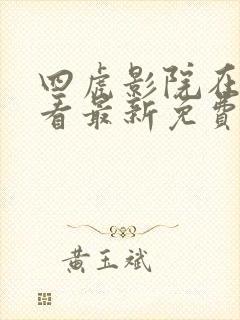 四虎影院在
看最新免費
黄玉斌